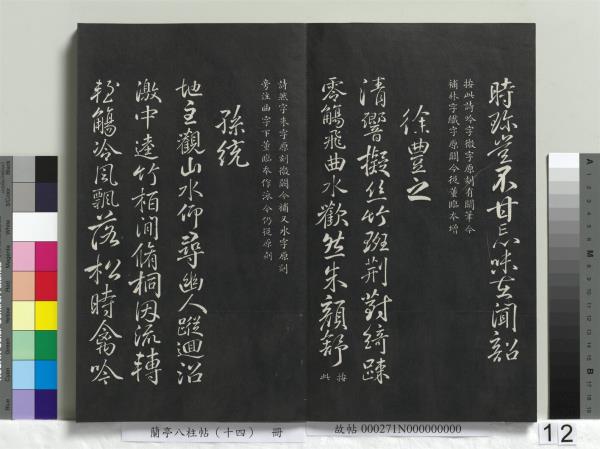 時珍豈不甘忘味在聞韶
按此詩吟字微字原刻有闕筆今
補林字纖字原闕今從董臨本增
徐豐之
清響擬絲竹班荊對綺疎
零觴飛曲水歡然朱顏舒
按此
詩然字朱字原刻微闕今補又水字原刻
旁注曲字下董臨本作泳今仍從原刻
孫統
地主觀山水仰尋幽人蹤迴沼
激中逵竹栢間脩桐因流轉
輕觴冷風飄落松時禽吟
蘭亭八柱帖(十四) 冊
故帖 000271N000000000
12